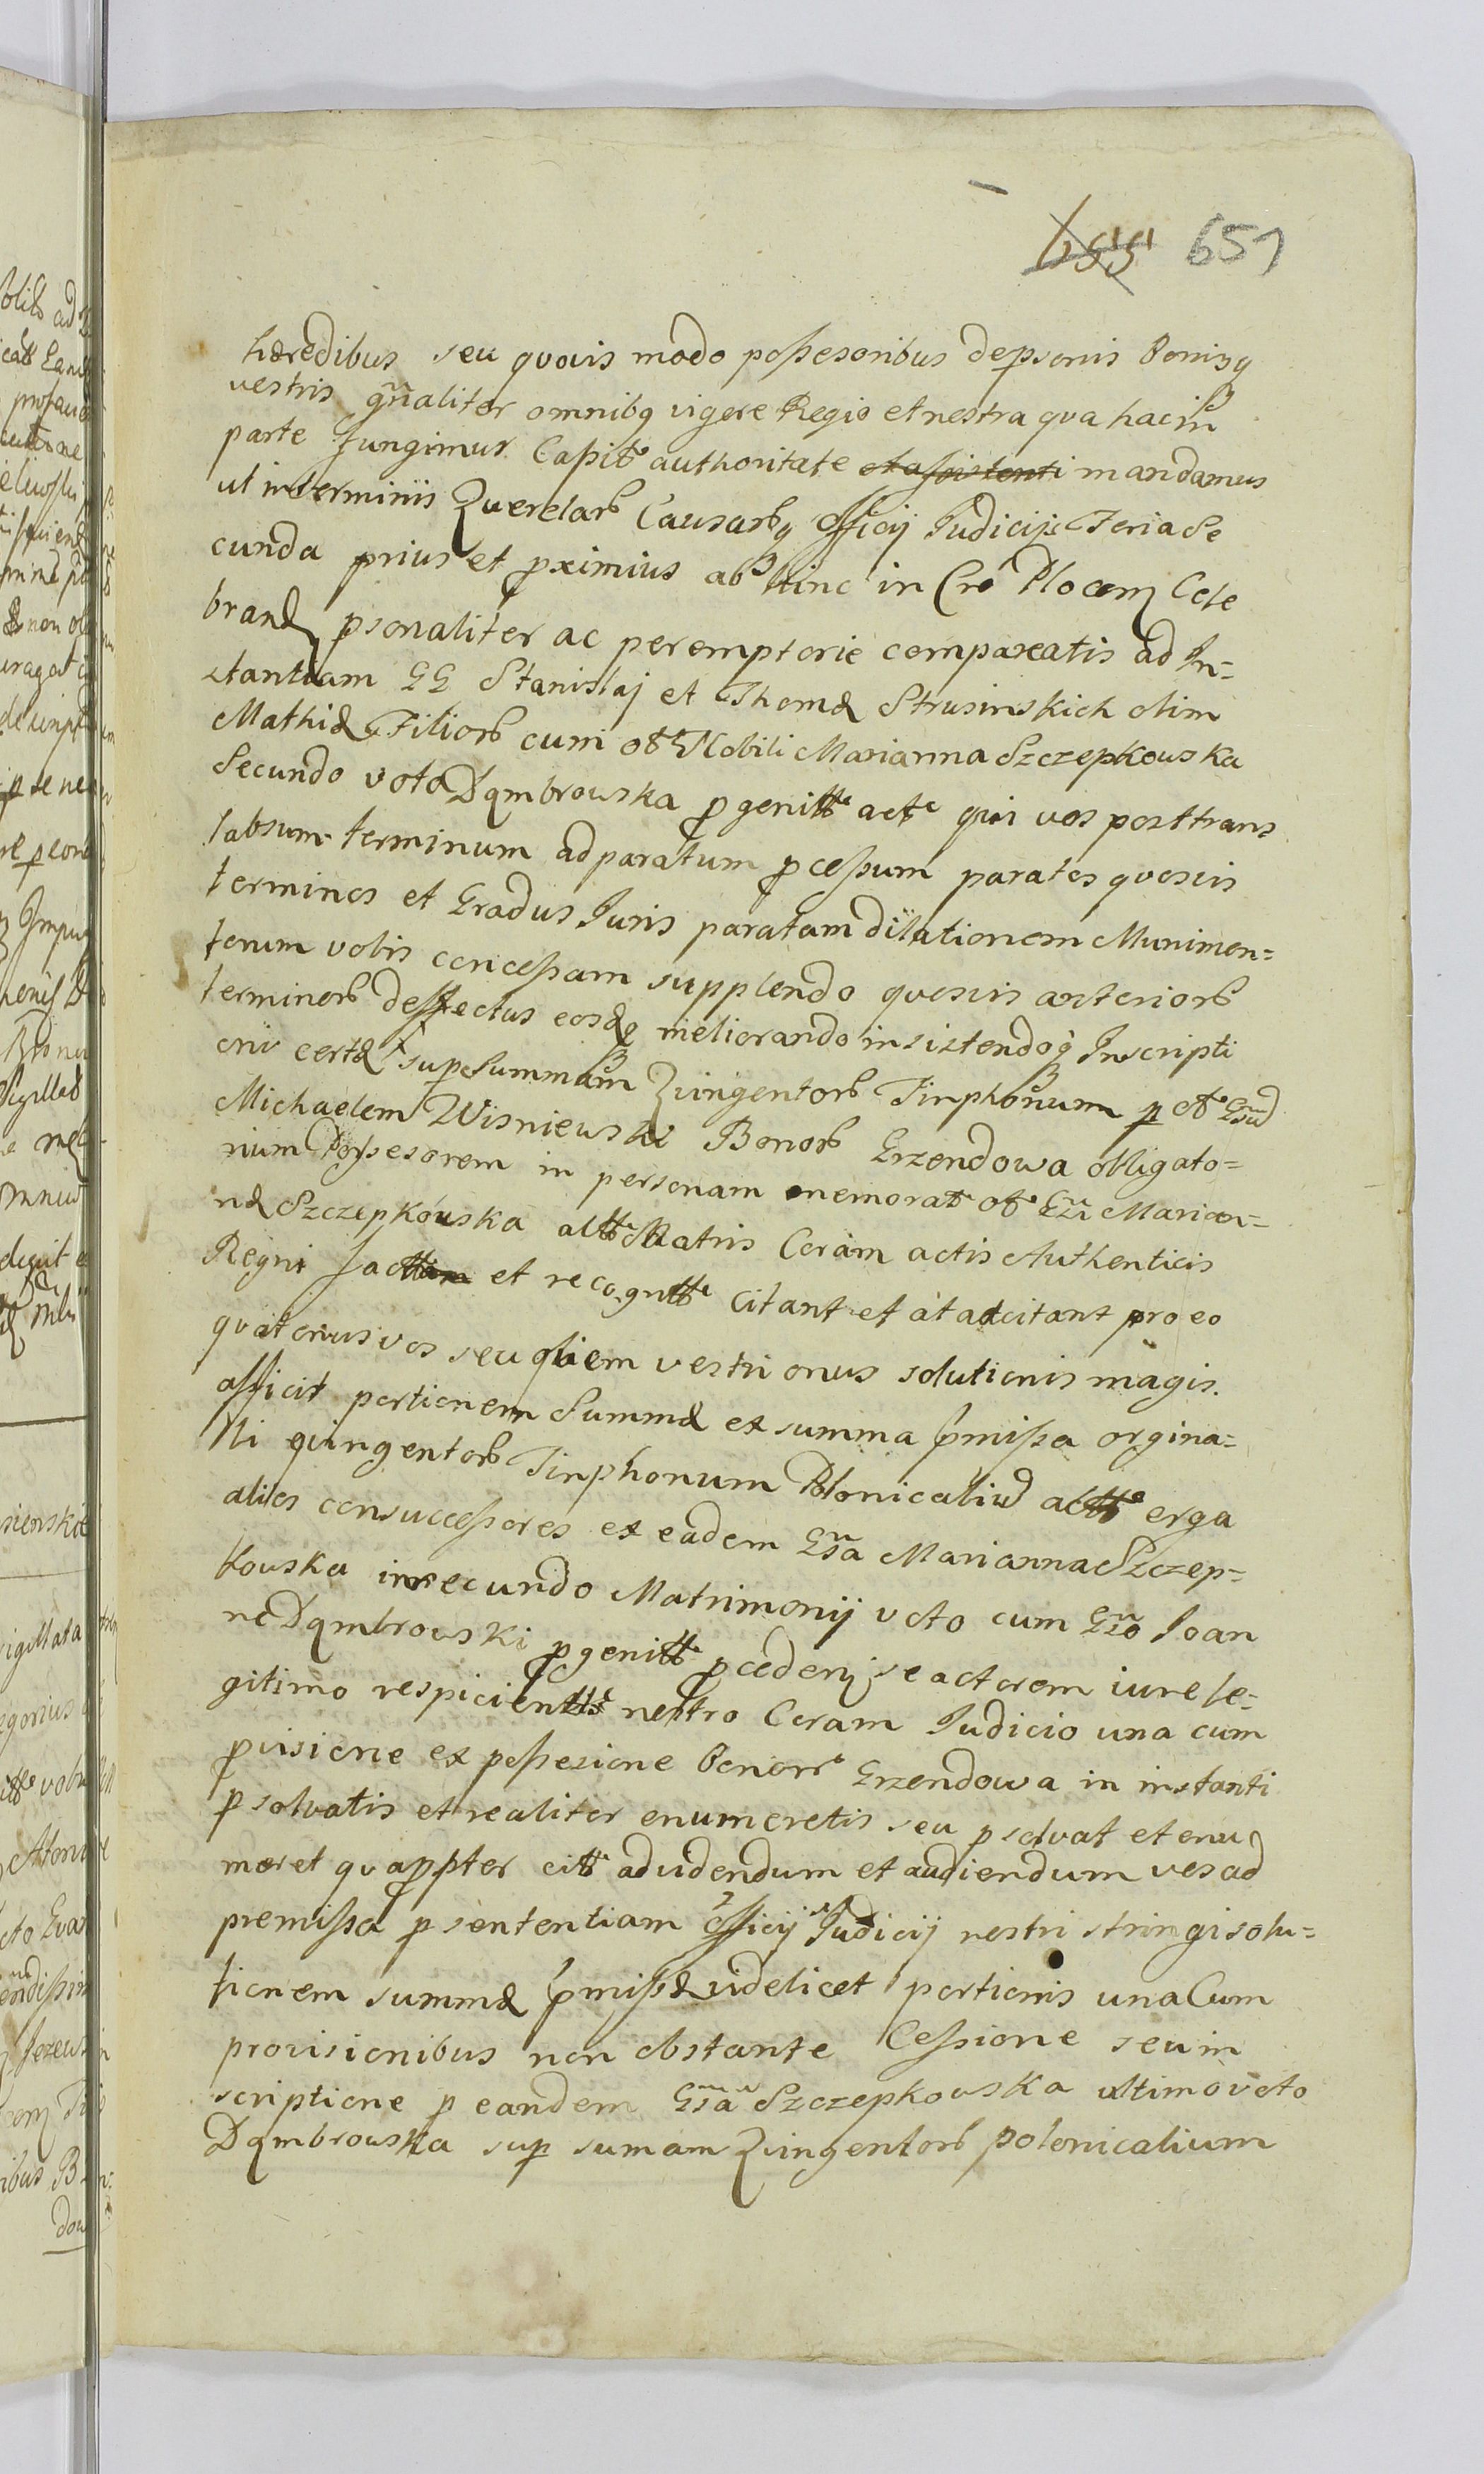 655 651
hæredibus seu quovis modo possesoribus depsonis Bonisq
vestris gñaliter omnibq vigore Regio et nostra qua hac in
parte fungimur Capitᵉ authoritate et assistenti mandamus
ut in terminis Querelarb Causarbq Officij Judicijs Feria Se
cunda prius et pximius ab hinc in Cro Plocen Cele
brand psonaliter ac peremptorie compareatis ad In=
stantiam GG Stanislaj et Thomæ Strusinskich olim
Mathiæ Filiorb cum oltᵉ Nobili Marianna Szczepkowska
Secundo voto Dąmbrowska pgenittᵉ actᵉ qui vos posttrans
labsum terminum ad paratum pcessum paratos quosvis
terminos et Gradus Juris paratam dilationem Munimen=
torum vobis concessam supplendo quosvis anteriorb
terminorb deffectus eosdq meliorando insistendoq Inscripti
oni certæ super Summam Quingentorb Tinphonum p oltᵉ Gñsu
Michaelem Wisniewski Bonorb Grzendowa obligato=
rium Possesorem in personam memoratᵉ oltᵉ Gñi Marian=
næ Szczepkowska acttᵉ Matris Coram actis Authenticis
Regni factam et recognittᵉ citant et at adcitant pro eo
quatenus vos seu qliem vestri onus solutionis magis
afficit portionem Summæ ex summa pmissa orgina=
li quingentorb Tinphonum Polonicaliu acttᵉ erga
alios consuccessores ex eadem Gñsa Marianna Szczep=
kowska in secundo Matrimonij voto cum Gñso Joan
ne Dąmbrowski pgenittᵉ pceden se actorem iure le=
gitimo respicientts nostro Coram Judicio una cum
pvisione ex possesione Bonorᵉ Grzendowa in instanti
psolvatis et realiter enumeretis seu psolvat et enu
meret quappter cittᵉ ad videndum et audiendum vos ad
premissa p sententiam Officij Judicij nostri stringi solu=
tionem summæ pmissæ videlicet portionis una Cum
provisionibus non obstante Cessione seu in
scriptione p eandem Gñsa Szczepkowska ultimo voto
Dąmbrowska sup sumam Quingentorb polonicalium